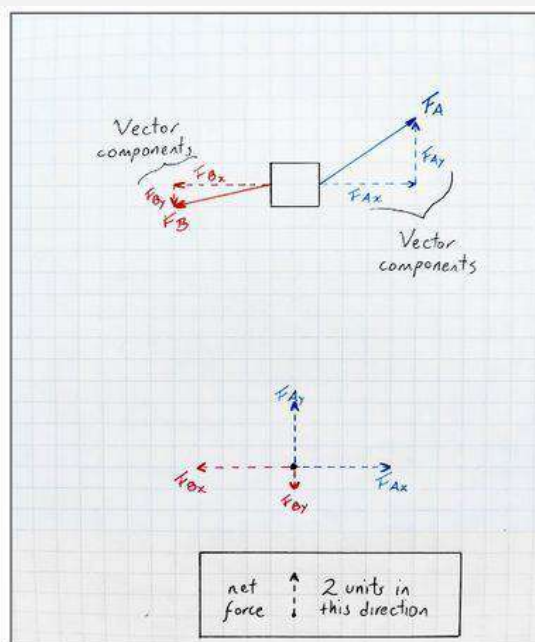 FA
Vector
components
FBx
FAy
FBy
FAx
FB
Vector
components
FAy
FBx
FBy
FAx
net
force
2 units in
this direction